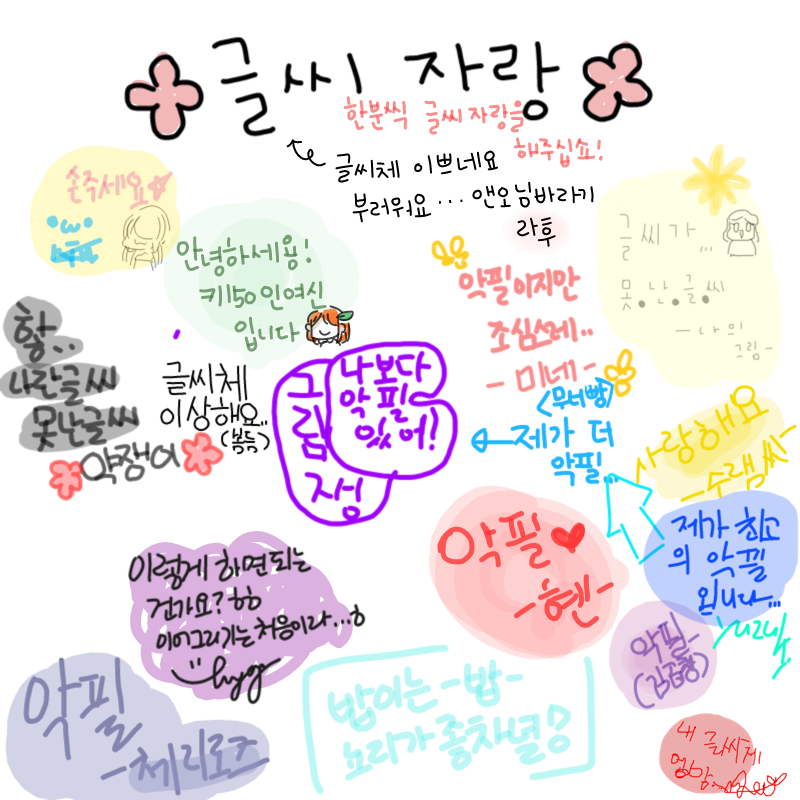 글씨 자랑
한분씩 글씨 자랑을
해주십쇼!
글씨체 이쁘네요
부러워요... 앤오님바라기
라후
손주세요
안녕하세용!
키150인여신
입니다
악필이지만
조심스레..
- 미네 -
글씨가...
못.난.글.씨
- 나의
그림 -
핳..
나란글씨
못난글씨
약쟁이
글씨체
이상해요..
(복듕)
그림자성
나보다
악필
있어!
<무너빵>
제가 더
악필...
사랑해요
- 수램씨 -
제가 최고
의 악필
입니다...
악필
- 헨 -
이렇게 하면되는
건가요? ㅎㅎ
이어그리기는 처음이라...ㅎ
hyg
악필
- 체리로즈
밥이는 -밥-
악필-
내 글씨체